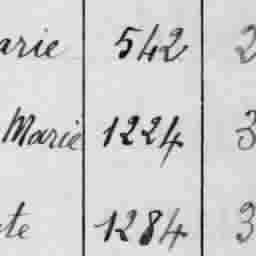 arie 542 2
Marie 1224 3
te 1284 3